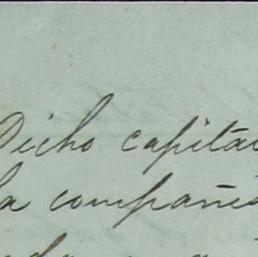 Dicho capitá
la compañí